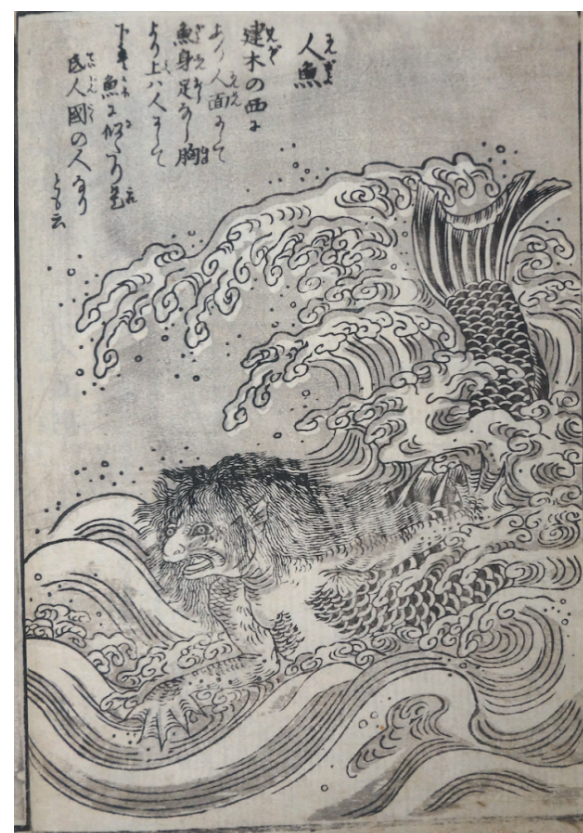 人魚
建木の西に
あり人面にして
魚身足なし胸
より上ハ人にして
下ハ魚に似たり是
氐人國の人なり
とも云